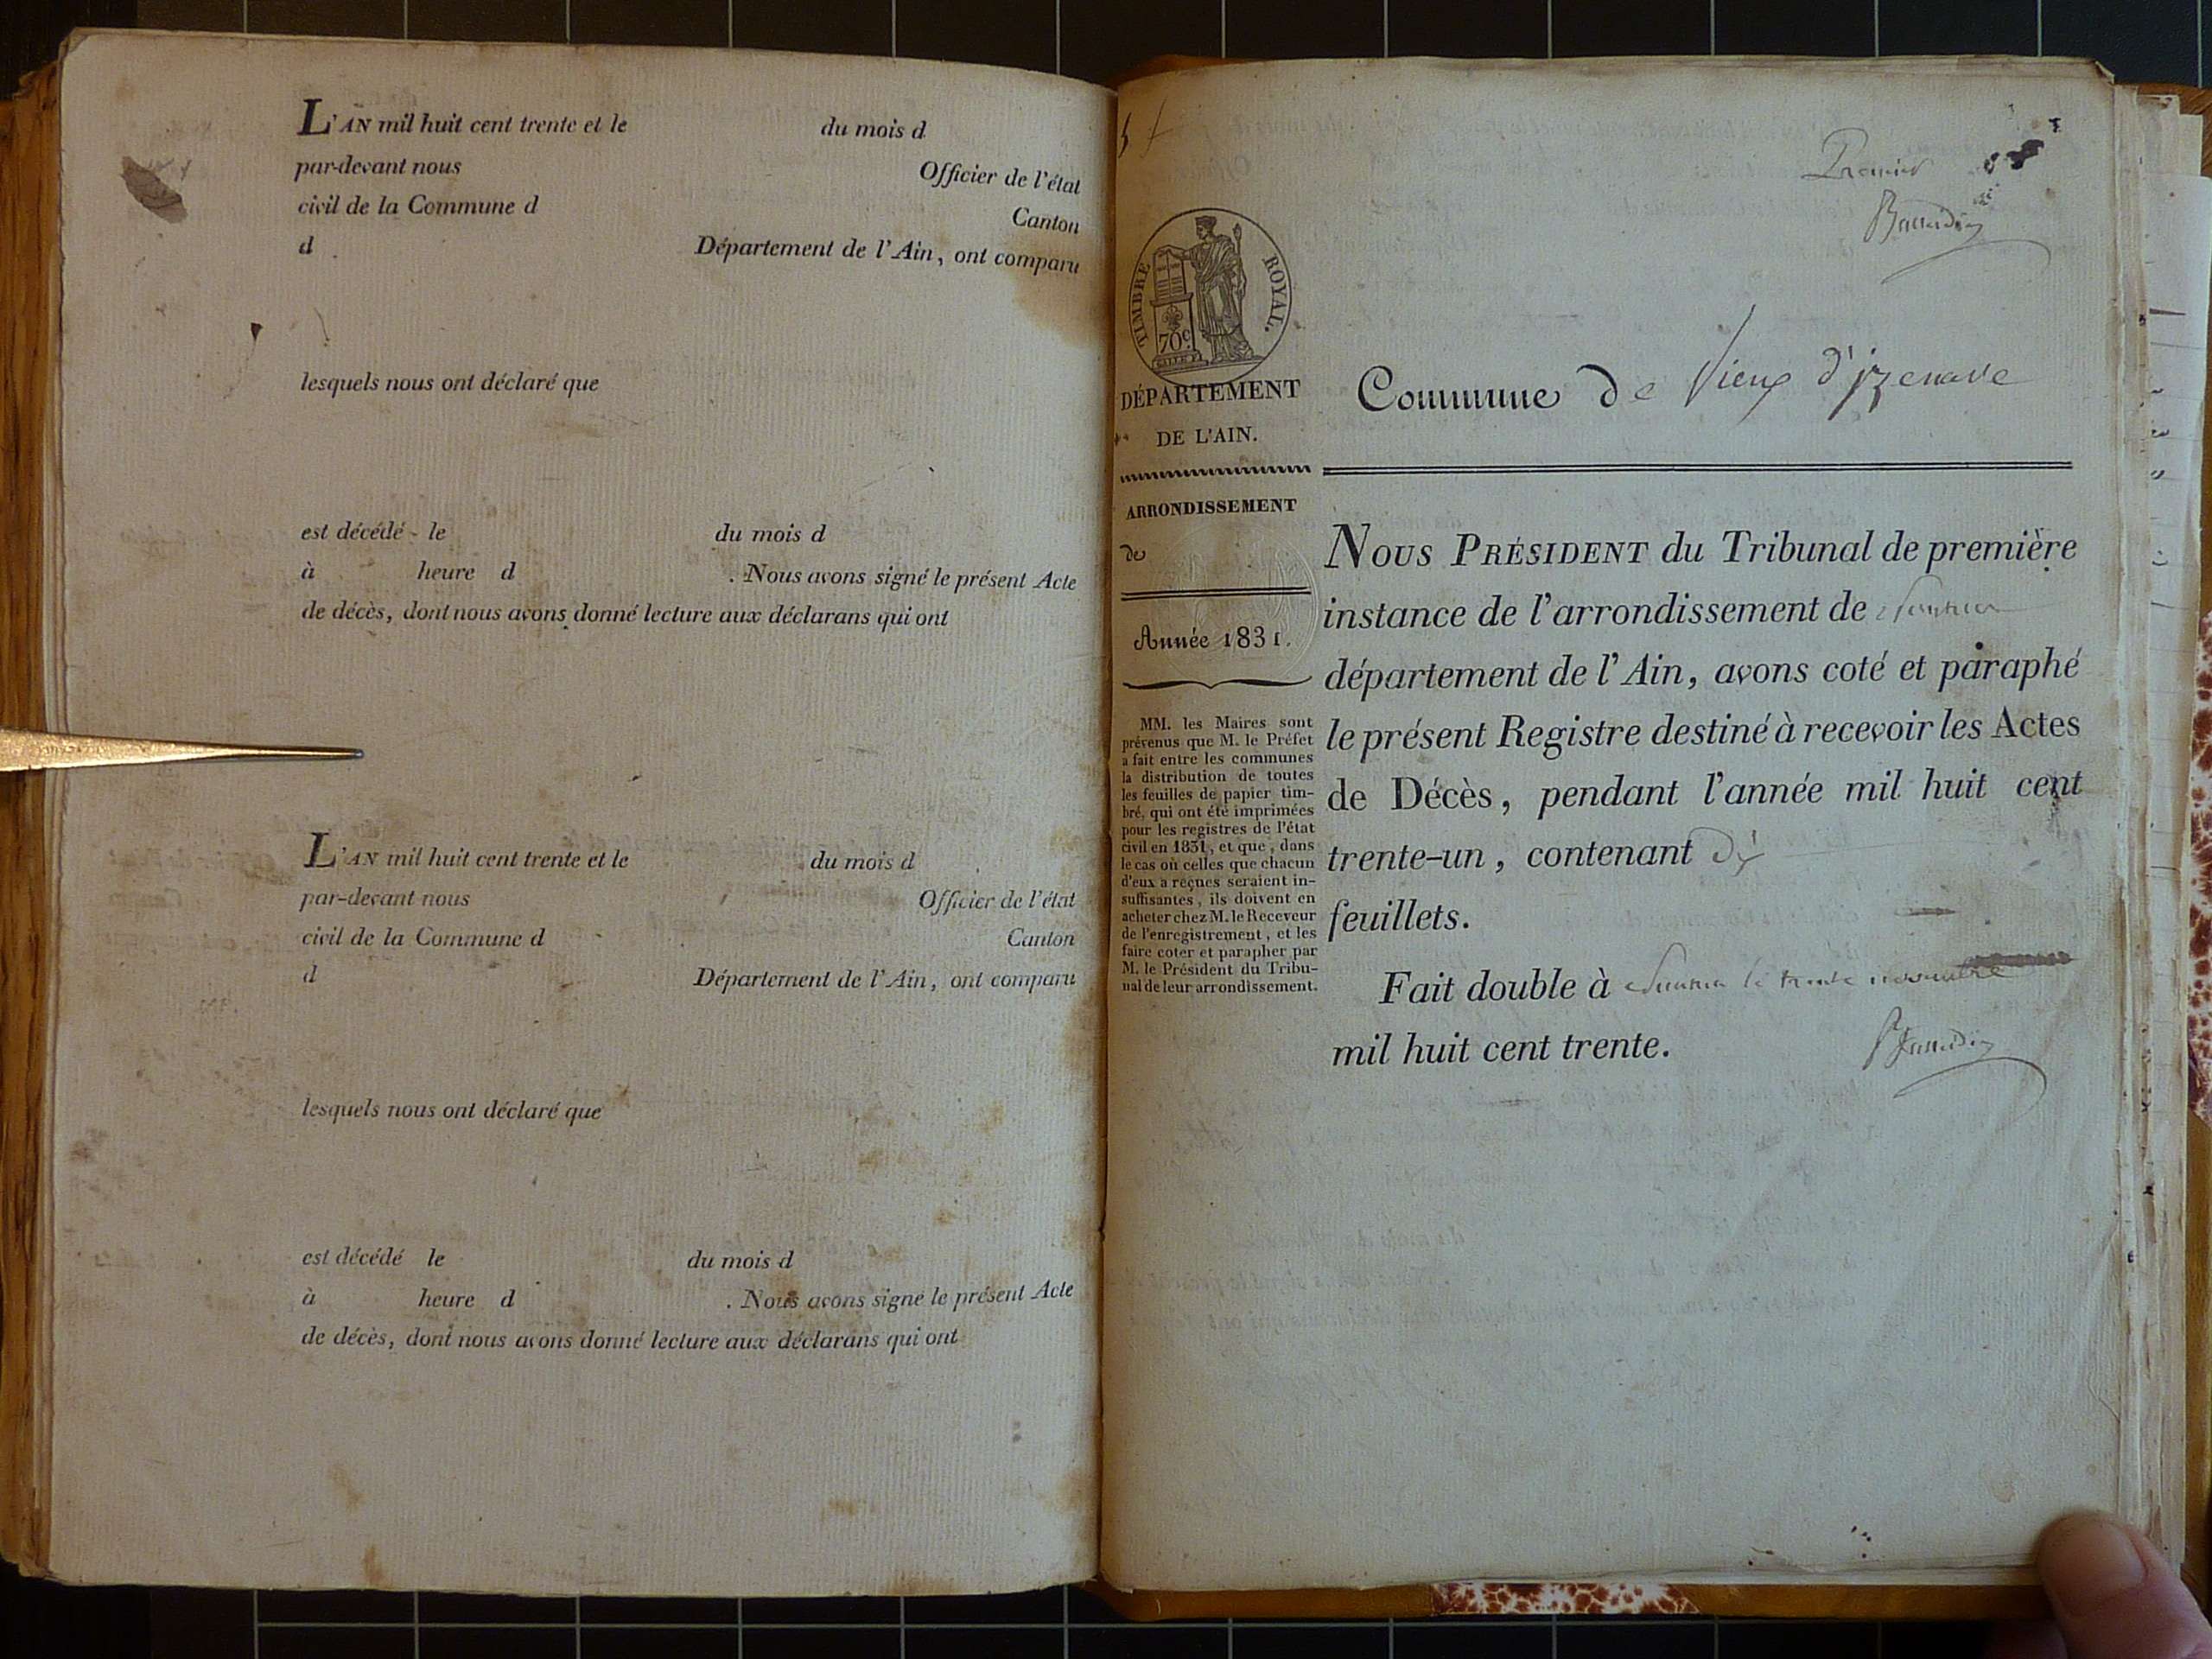 L'AN mil huit cent trente et le du mois d
par-devant nous Officier de l'état
civil de la Commune d Canton
d Département de l'Ain, ont comparu
lesquels nous ont déclaré que
est décédé le du mois d
à heure d . Nous avons signé le présent Acte
de décès, dont nous avons donné lecture aux déclarans qui ont
L'AN mil huit cent trente et le du mois d
par-devant nous Officier de l'état
civil de la Commune d Canton
d Département de l'Ain, ont comparu
lesquels nous ont déclaré que
est décédé le du mois d
à heure d . Nous avons signé le présent Acte
de décès, dont nous avons donné lecture aux déclarans qui ont
Premier
TIMBRE ROYAL.
70c
DÉPARTEMENT
DE L'AIN.
ARRONDISSEMENT
de
Année 1831.
MM. les Maires sont
prévenus que M. le Préfet
a fait entre les communes
la distribution de toutes
les feuilles de papier tim-
bré, qui ont été imprimées
pour les registres de l'état
civil en 1831, et que, dans
le cas où celles que chacun
d'eux a reçues seraient in-
suffisantes, ils doivent en
acheter chez M. le Receveur
de l'enregistrement, et les
faire coter et parapher par
M. le Président du Tribu-
nal de leur arrondissement.
Commune de Vieux d'izenave
NOUS PRÉSIDENT du Tribunal de première
instance de l'arrondissement de
département de l'Ain, avons coté et paraphé
le présent Registre destiné à recevoir les Actes
de Décès, pendant l'année mil huit cent
trente-un, contenant dix
feuillets.
Fait double à le trente novembre
mil huit cent trente.